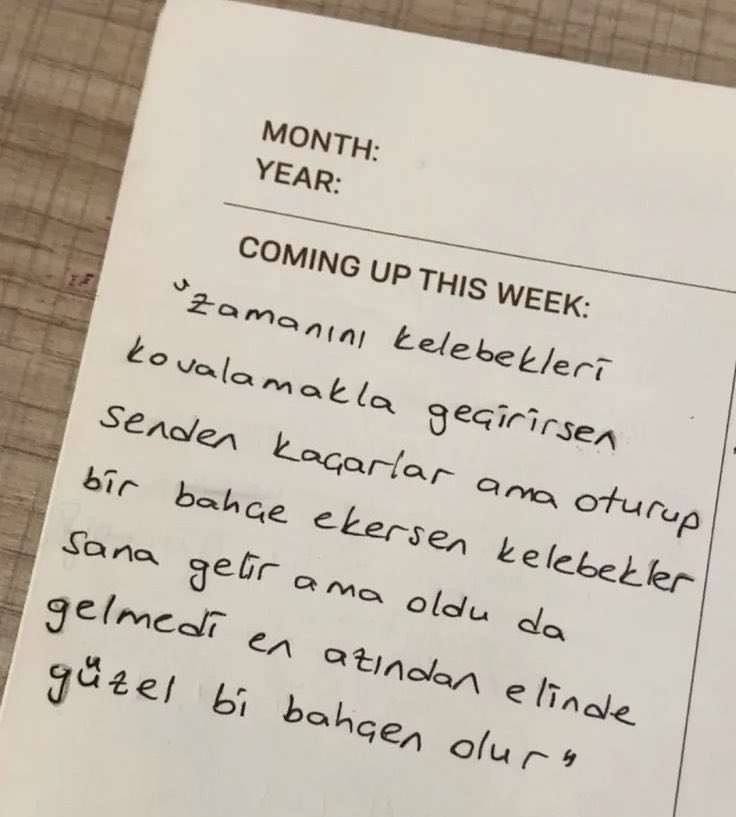 MONTH:
YEAR:
COMING UP THIS WEEK:
"zamanını kelebekleri
kovalamakla geçirirsen
senden kaçarlar ama oturup
bir bahçe ekersen kelebekler
sana gelir ama oldu da
gelmedi en azından elinde
güzel bi bahçen olur"